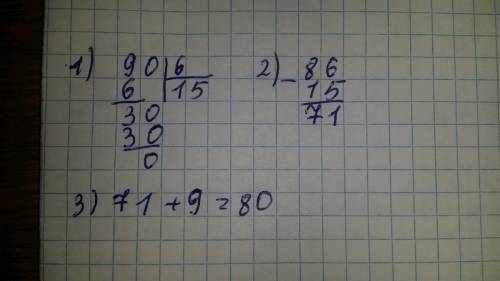 1) 90 6 2) - 86
6 15 15
30 71
30
0
3) 71 + 9 = 80